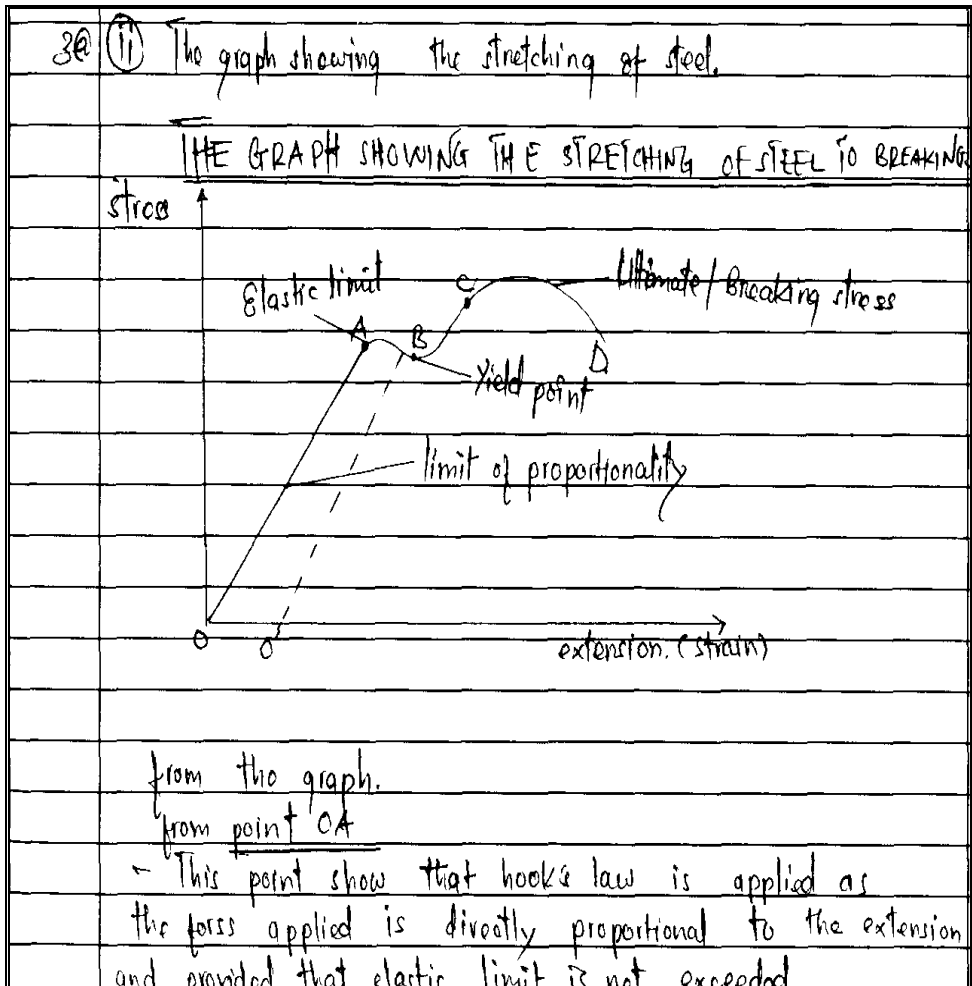 3(a) (ii) The graph showing the stretching of steel.
THE GRAPH SHOWING THE STRETCHING OF STEEL TO BREAKING
stress
Elastic limit
C
Ultimate/Breaking stress
A
B
D
Yield point
limit of proportionality
O
O'
extension. (strain)
from the graph.
from point OA
- This point show that hook's law is applied as
the forss applied is directly proportional to the extension
and provided that elastic limit is not exceeded